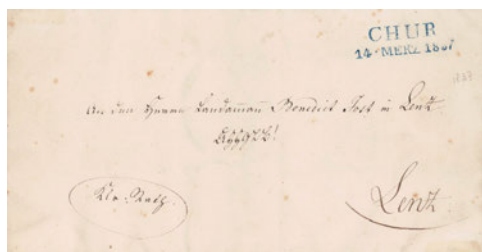 CHUR
14 MERZ 1837
1837
An den Herrn Landamann Benedict Jost in Lenz
Lenz